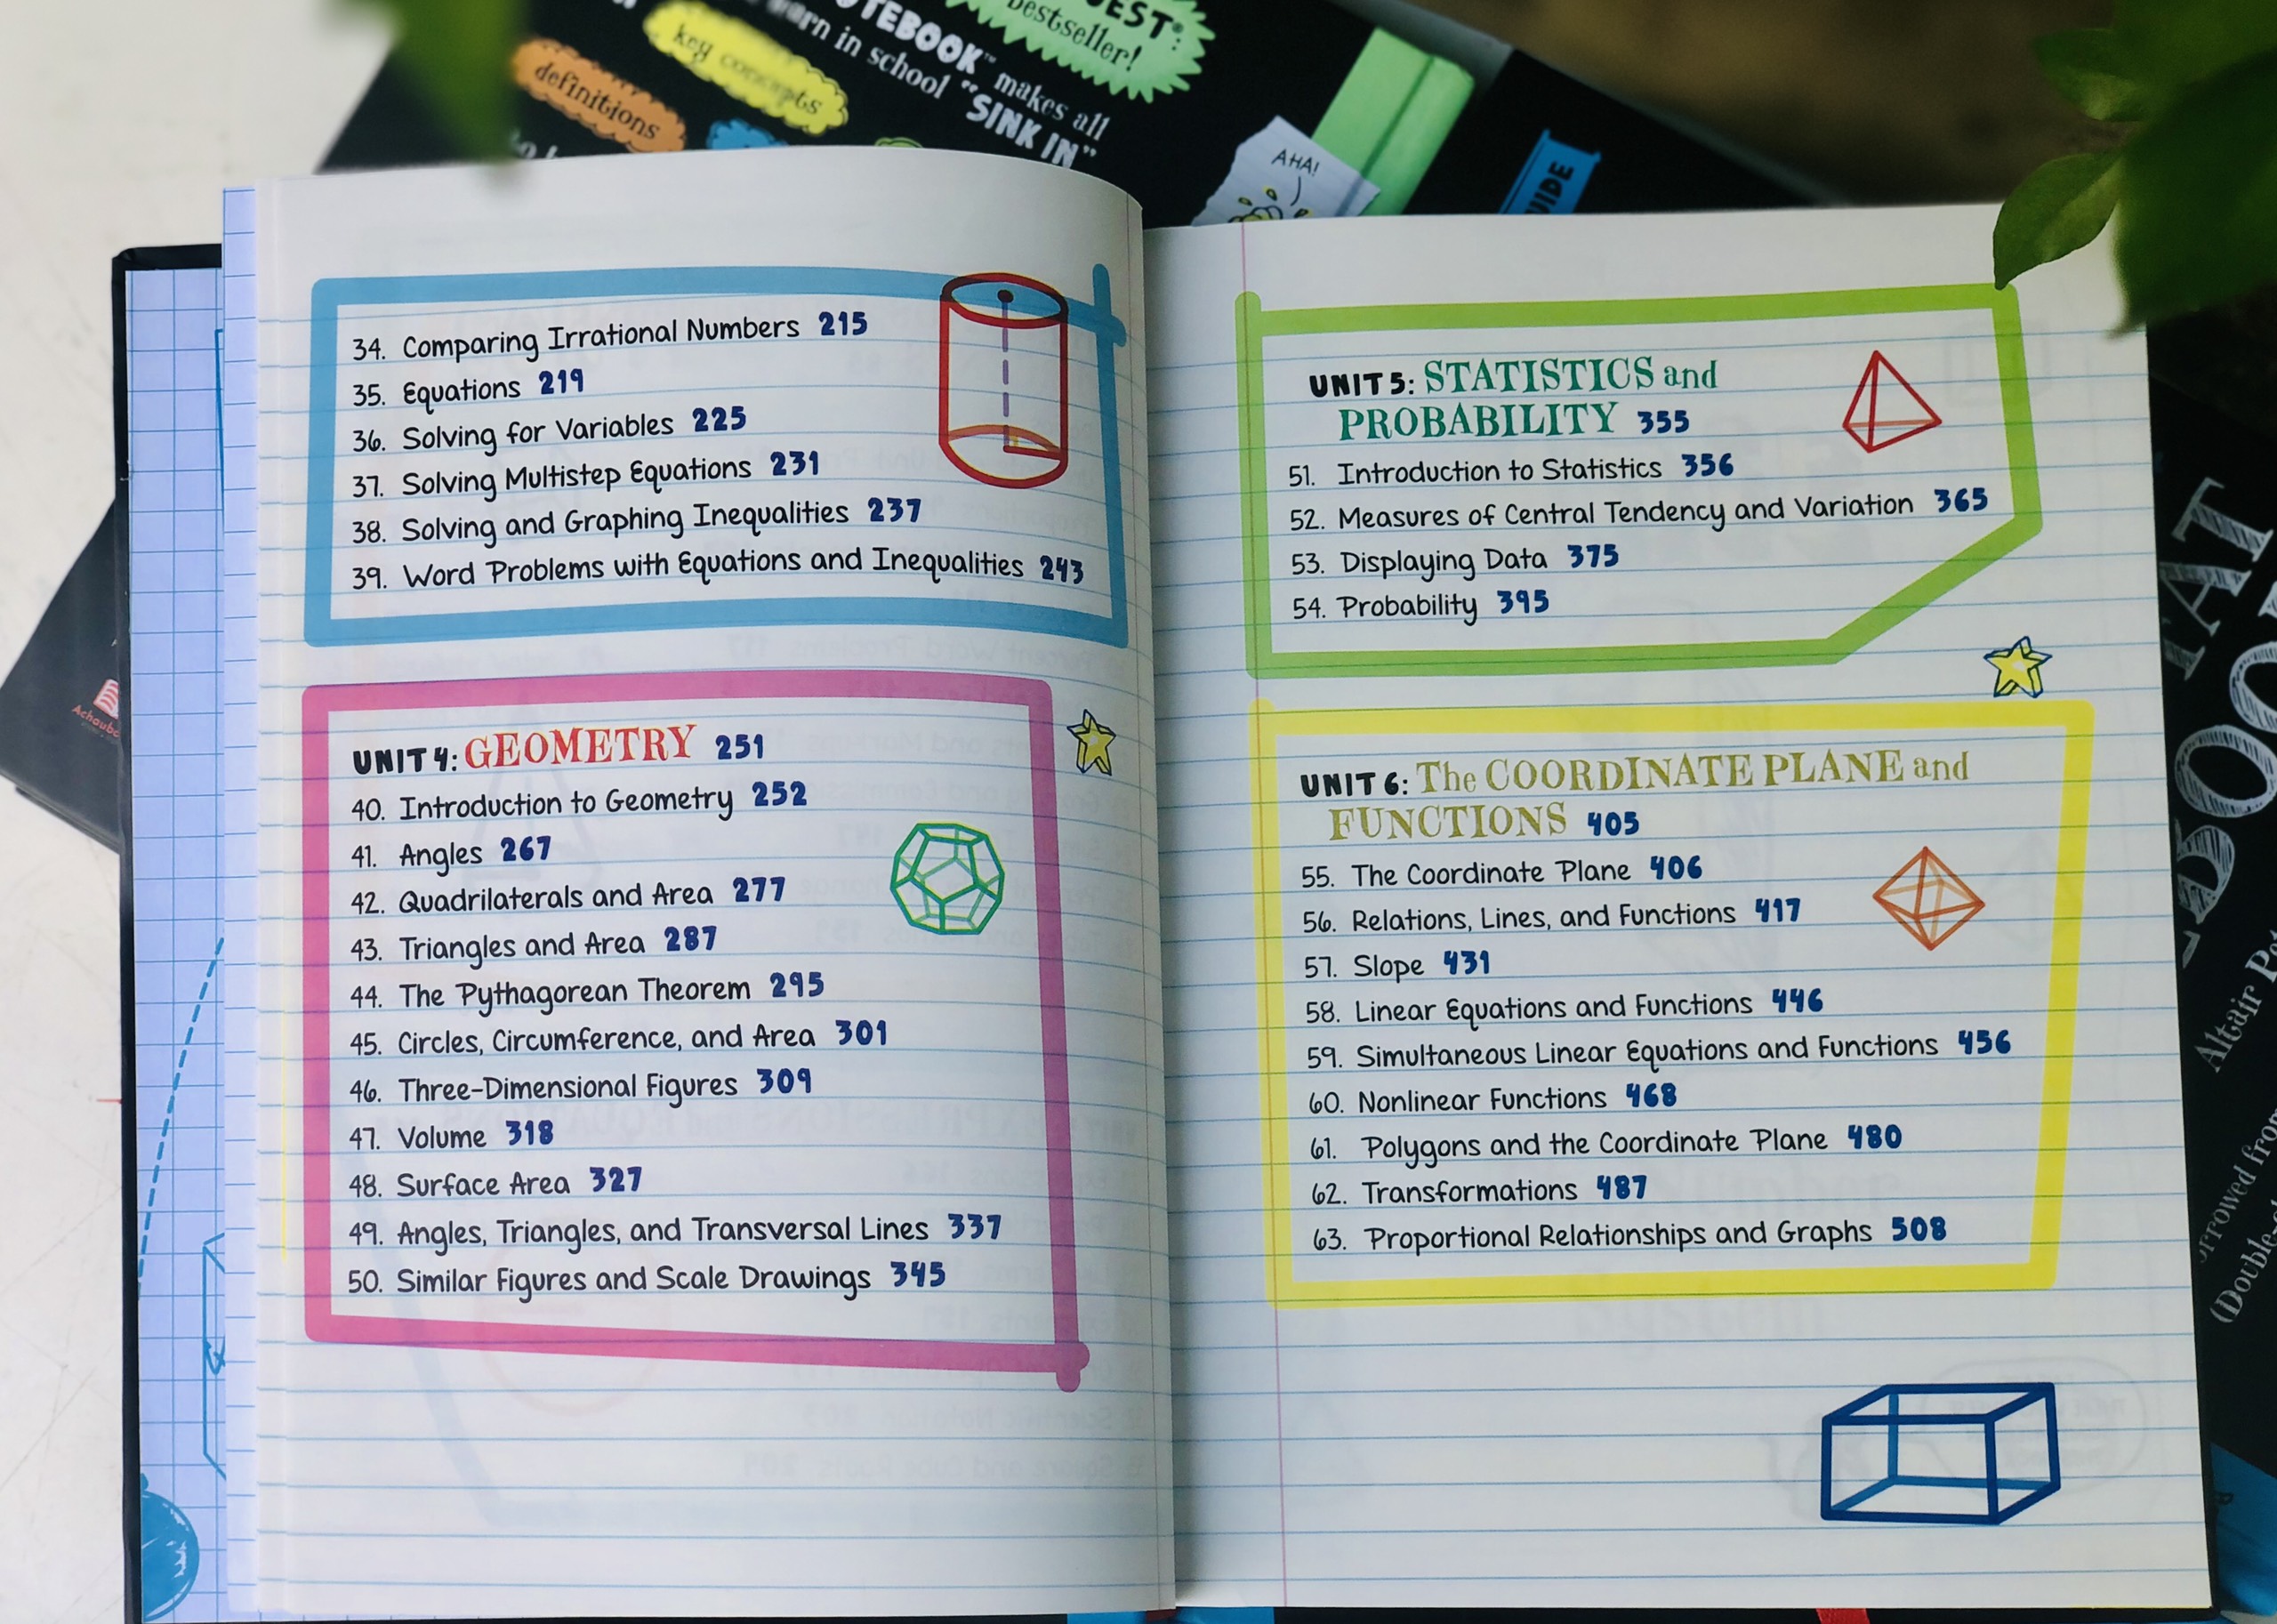 BEST:
bestseller!
NOTEBOOK™ makes all
learn in school "SINK IN"
key concepts
definitions
AHA!
34. Comparing Irrational Numbers 215
35. Equations 219
36. Solving for Variables 225
37. Solving Multistep Equations 231
38. Solving and Graphing Inequalities 237
39. Word Problems with Equations and Inequalities 243
UNIT 4: GEOMETRY 251
40. Introduction to Geometry 252
41. Angles 267
42. Quadrilaterals and Area 277
43. Triangles and Area 287
44. The Pythagorean Theorem 295
45. Circles, Circumference, and Area 301
46. Three-Dimensional Figures 309
47. Volume 318
48. Surface Area 327
49. Angles, Triangles, and Transversal Lines 337
50. Similar Figures and Scale Drawings 345
UNIT 5: STATISTICS and
PROBABILITY 355
51. Introduction to Statistics 356
52. Measures of Central Tendency and Variation 365
53. Displaying Data 375
54. Probability 395
UNIT 6: The COORDINATE PLANE and
FUNCTIONS 405
55. The Coordinate Plane 406
56. Relations, Lines, and Functions 417
57. Slope 431
58. Linear Equations and Functions 446
59. Simultaneous Linear Equations and Functions 456
60. Nonlinear Functions 468
61. Polygons and the Coordinate Plane 480
62. Transformations 487
63. Proportional Relationships and Graphs 508
Altair